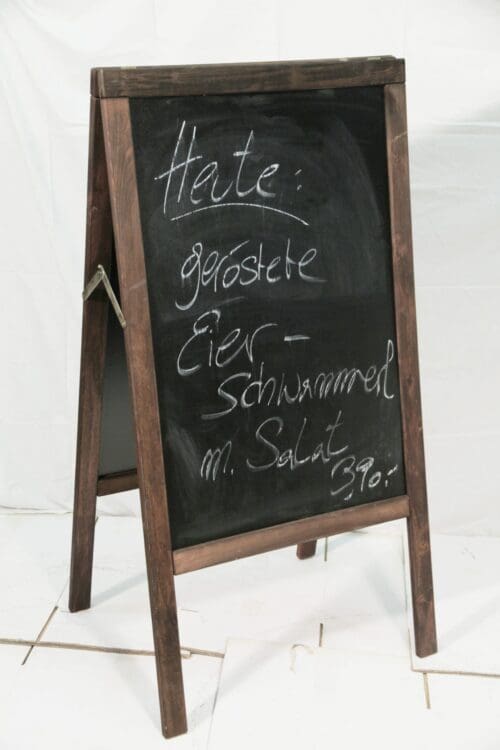 Heute:
geröstete
Eier-
schwammerl
m. Salat
3,90.-